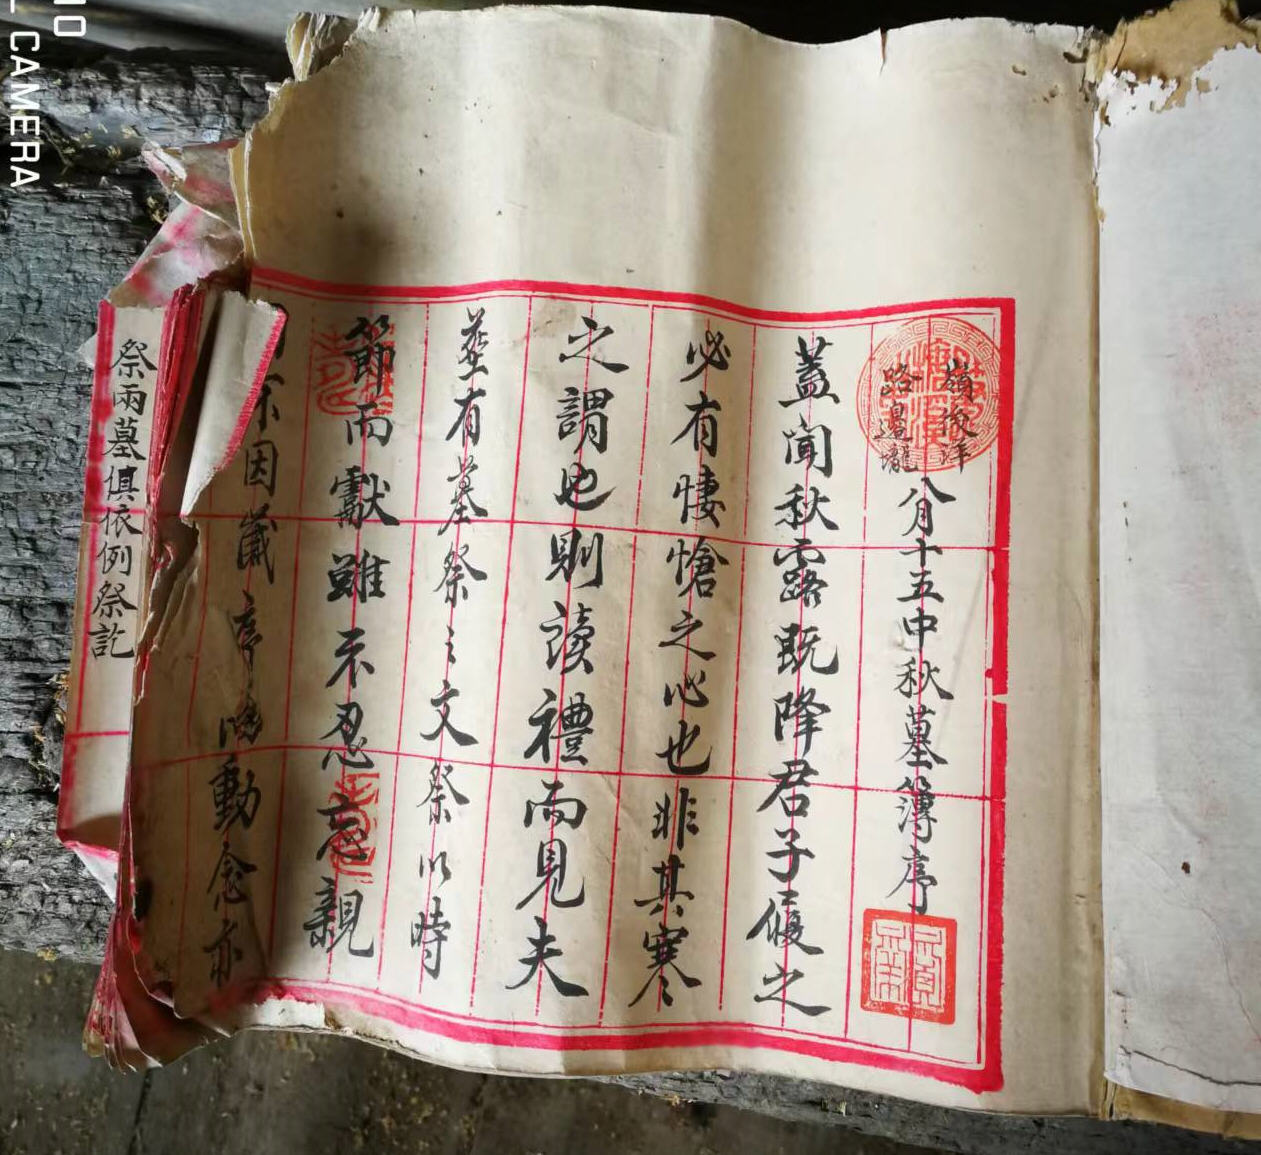 嶺後洋
路邊壠
八月十五中秋墓簿序
蓋聞秋露既降君子履之
必有悽愴之心也非其寒
之謂也則讀禮而見夫
塋有墓祭之文祭以時
節而獻雖不忍忘親
因歲序 動念亦
祭兩墓俱依例祭訖
CAMERA